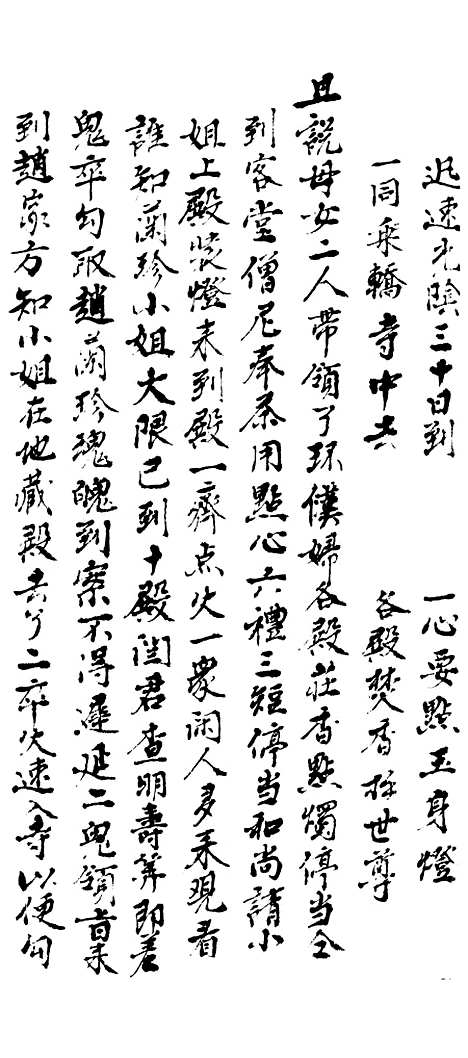 迅速光陰三十日到　一心要點玉身燈
一同乘轎寺中去　各殿焚香拜世尊
且說母女二人帶領了环僕婦各殿莊香點燭停当仝
到客堂僧尼奉茶用點心六禮三短停当和尚請小
姐上殿裝燈未到殿一齊点火一衆闲人多来現看
誰知蘭珍小姐大限已到十殿閻君查明壽筭即差
鬼卒勾取趙蘭珍魂魄到案不得遲延二鬼領旨来
到趙家方知小姐在地藏殿去了二卒火速入寺以便勾